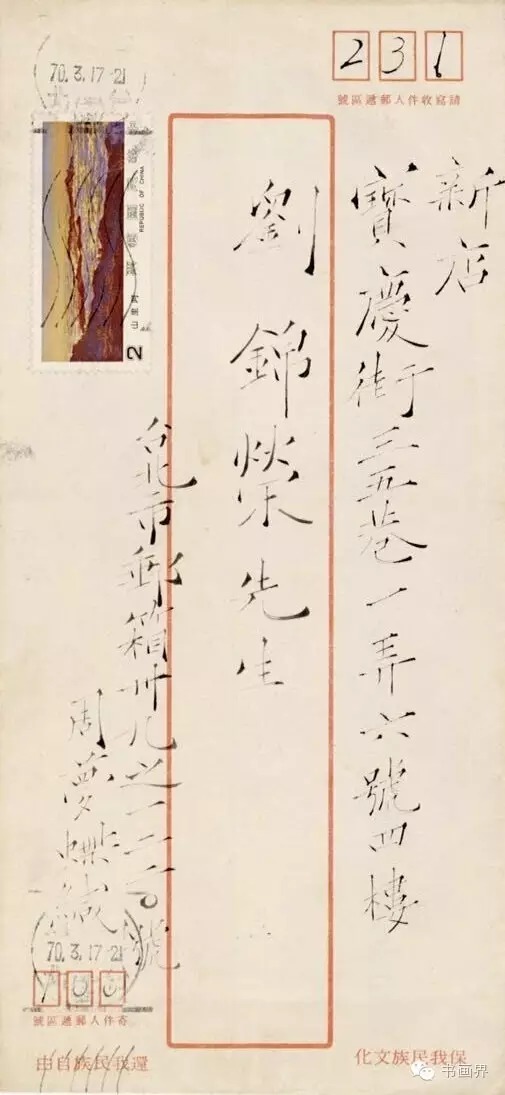 231
請寫收件人郵遞區號
新店
寶慶街三五巷一弄六號四樓
劉錦榮先生
70.3.17-21
中華民國郵票
REPUBLIC OF CHINA
2
台北市郵箱卅九之
號
周夢蝶緘
70.3.17-21
100
寄件人郵遞區號
保我民族文化
還我民族自由
书画界